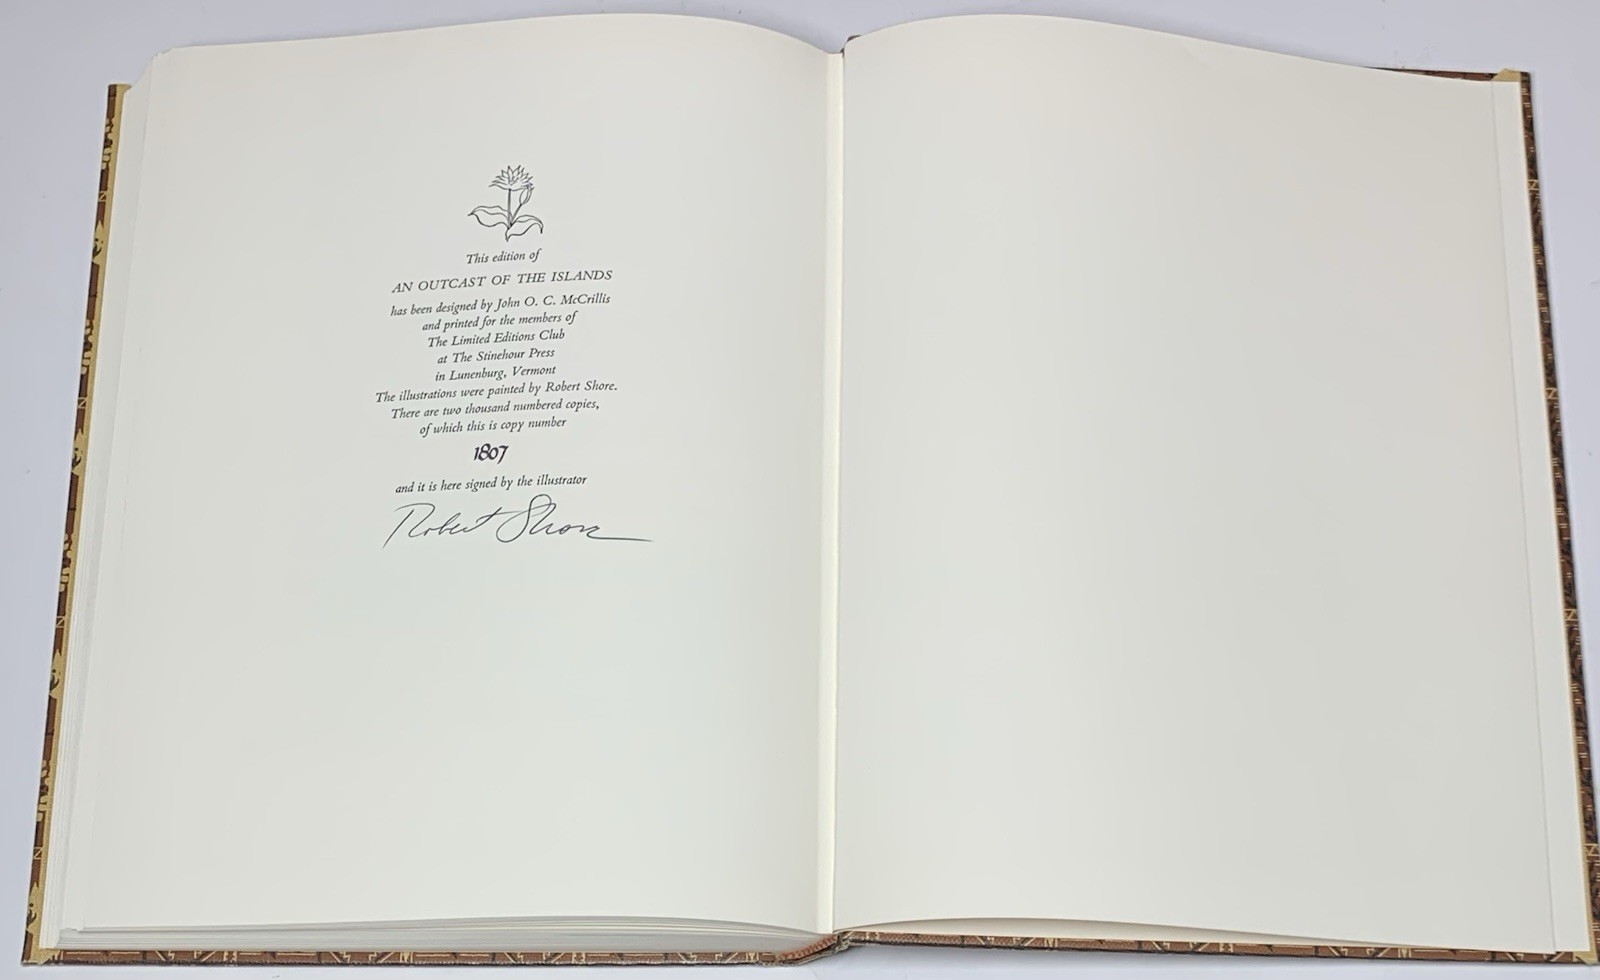 This edition of
AN OUTCAST OF THE ISLANDS
has been designed by John O. C. McCrillis
and printed for the members of
The Limited Editions Club
at The Stinehour Press
in Lunenburg, Vermont
The illustrations were painted by Robert Shore.
There are two thousand numbered copies,
of which this is copy number
1807
and it is here signed by the illustrator
Robert Shore